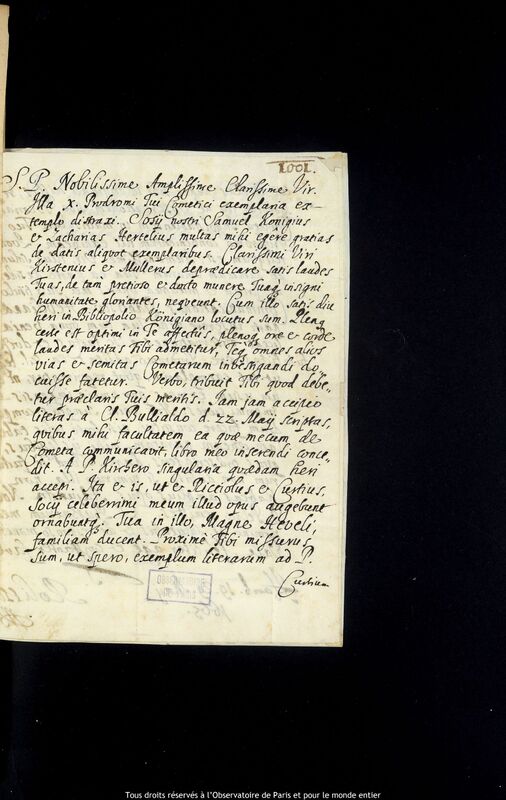 1001.
S. P. Nobilissime Amplissime Clarissime Vir.
Illa X. Prodromi Tui Cometici exemplaria ex-
templo distraxi. Socij nostri Samuel Konigius
& Zacharias Hertelius multas mihi egêre gratias
de datis aliquot exemplaribus. Clarissimi Viri
Kirstenius & Mullerus deprædicare satis laudes
Tuas, de tam pretioso & docto munere, Tuaq; insigni
humanitate gloriantes, nequeunt. Cum illo satis diu
heri in Bibliopolio Königiano locutus sum. Plenq
certè est optimi in Te affectûs, pleno ore & corde
laudes meritas Tibi admetitur, Teq; omnes alios
vias & semitas Cometarum investigandi do-
cuisse fatetur. Verbo, tribuit Tibi quod debe-
tur præclaris Tuis meritis. Jam jam accipio
literas à Cl. Bullialdo d. 22. Maij scriptas,
quibus mihi facultatem ea quæ mecum de
Cometa communicavit, libro meo inserendi conce-
dit. A P. Kirchero singularia quædam heri
accepi. Ita & is, ut & Ricciolus & Curtius,
Socij celeberrimi meum illud opus augebunt
ornabuntq;. Tua in illo, Magne Heveli,
familiam ducent. Proximè Tibi missurus
sum, ut spero, exemplum literarum ad P.
Curtium
Tous droits réservés à l'Observatoire de Paris et pour le monde entier